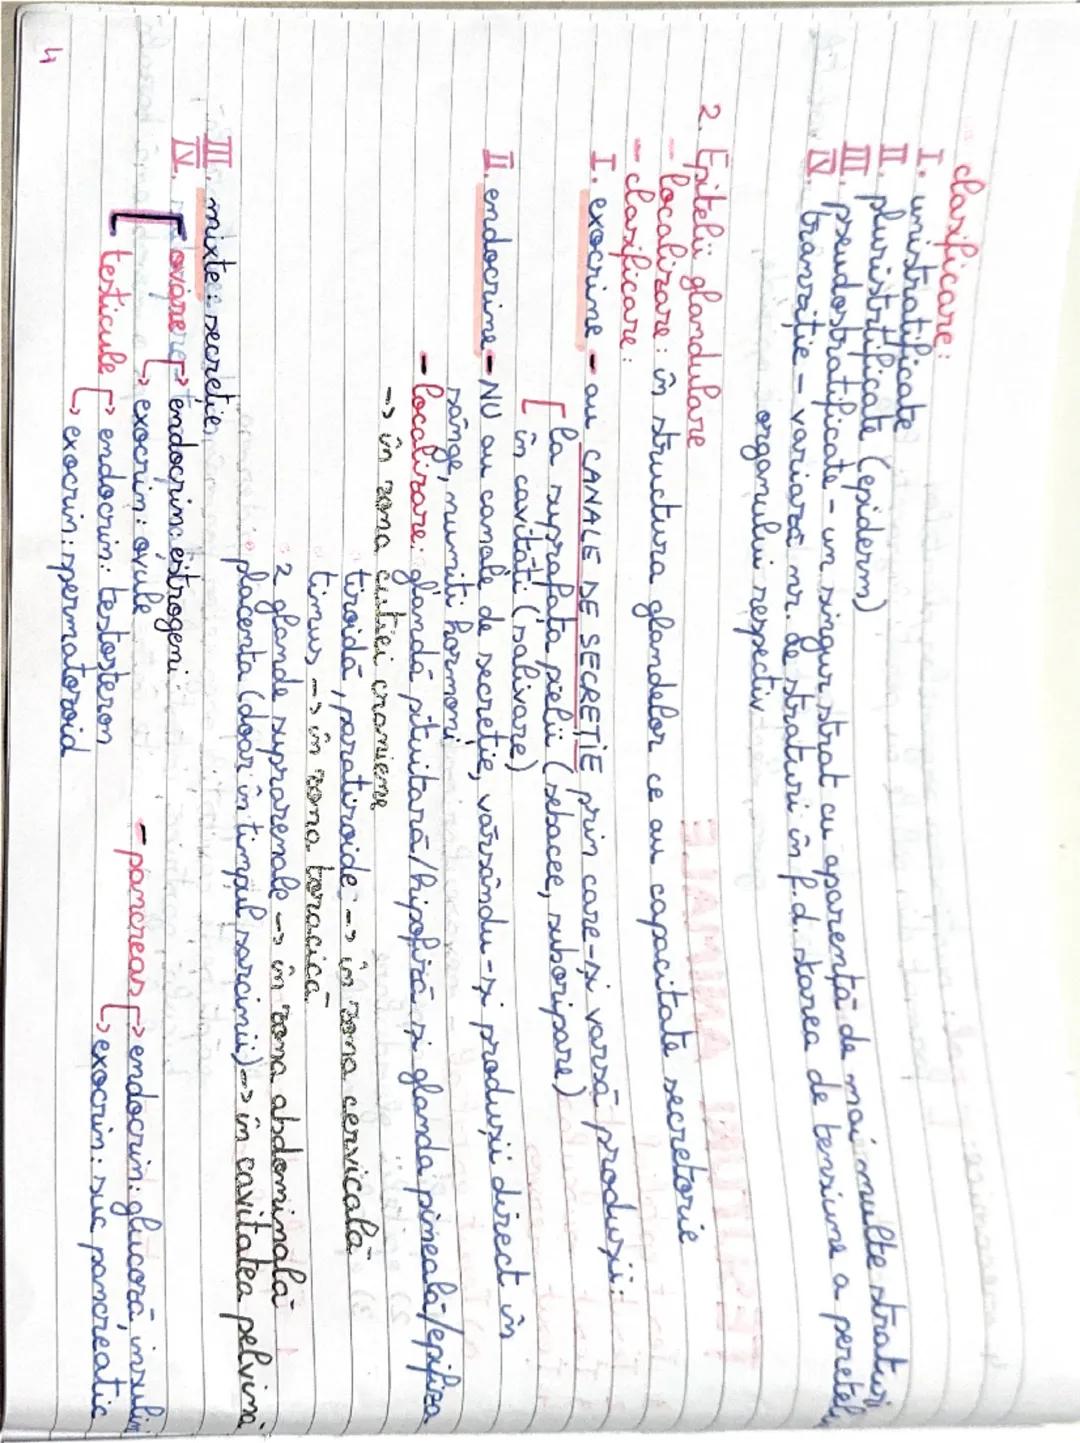 - clasificare:
I. unistratificate
II. pluristrtificate (epiderm)
III. pseudostratificate - un singur strat cu aparență de mai multe straturi
IV. tranziție - variază nr. de straturi în f.d. starea de tensiune a peretelui
organului respectiv
2. Epitelii glandulare
- localizare: în structura glandelor ce au capacitate secretorie
- clasificare:
I. exocrine - au CANALE DE SECREȚIE prin care-și varsă produxii:
[ la suprafața pielii (sebacee, sudoripare)
în cavități (salivare)
II. endocrine - NU au canale de secreție, vărsându-și produxii direct în
sânge, numiți hormoni
- localizare: glandă pituitară/hipofiză și glanda pineală/epifiza
-> în zona cutiei craniene
tiroidă, paratiroide -> în zona cervicală
timus -> în zona toracică
2 glande suprarenale -> în zona abdominală
placenta (doar în timpul sarcinii) -> în cavitatea pelvină
III. mixte: secreție
IV. [ ovare -> endocrin: estrogeni
-> exocrin: ovule
[ testicule -> endocrin: testosteron
-> exocrin: spermatozoid
- pancreas -> endocrin: glucoză, insulin
-> exocrin: suc pancreatic
4